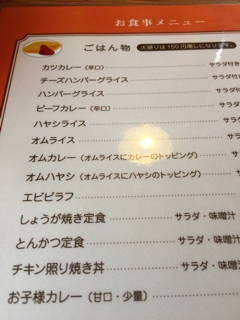 お食事メニュー
ごはん物 大盛りは150円増しになります。
カツカレー（辛口） サラダ付き
チーズハンバーグライス サラダ付
ハンバーグライス サラダ付
ビーフカレー（辛口） サラダ付
ハヤシライス サラ
オムライス サラ
オムカレー（オムライスにカレーのトッピング） サラ
オムハヤシ（オムライスにハヤシのトッピング） サラ
エビピラフ サラ
しょうが焼き定食 サラダ・味噌汁
とんかつ定食 サラダ・味噌汁
チキン照り焼き丼 サラダ・味噌汁
お子様カレー（甘口・少量）